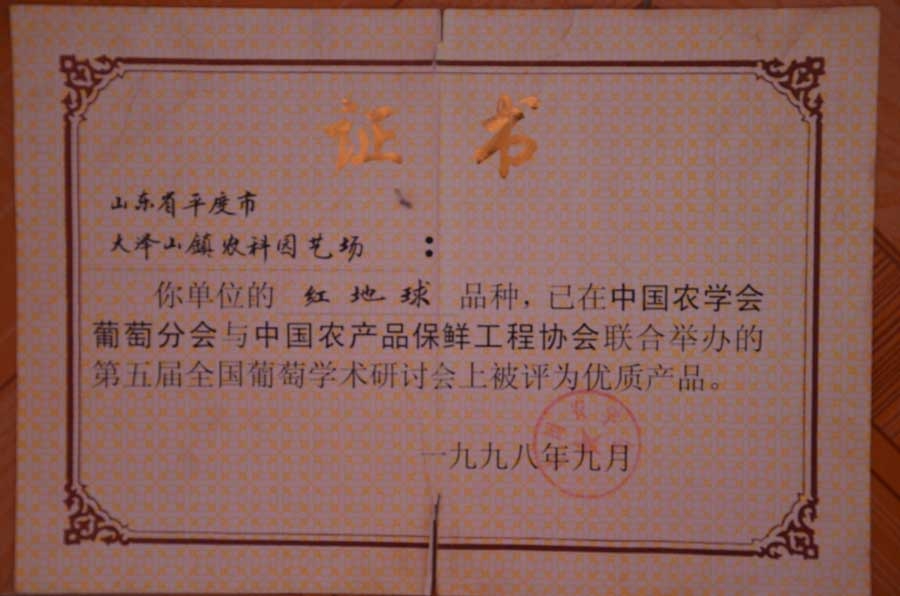 证书
山东省平度市
大泽山镇农科园艺场：
你单位的 红地球 品种，已在中国农学会
葡萄分会与中国农产品保鲜工程协会联合举办的
第五届全国葡萄学术研讨会上被评为优质产品。
一九九八年九月